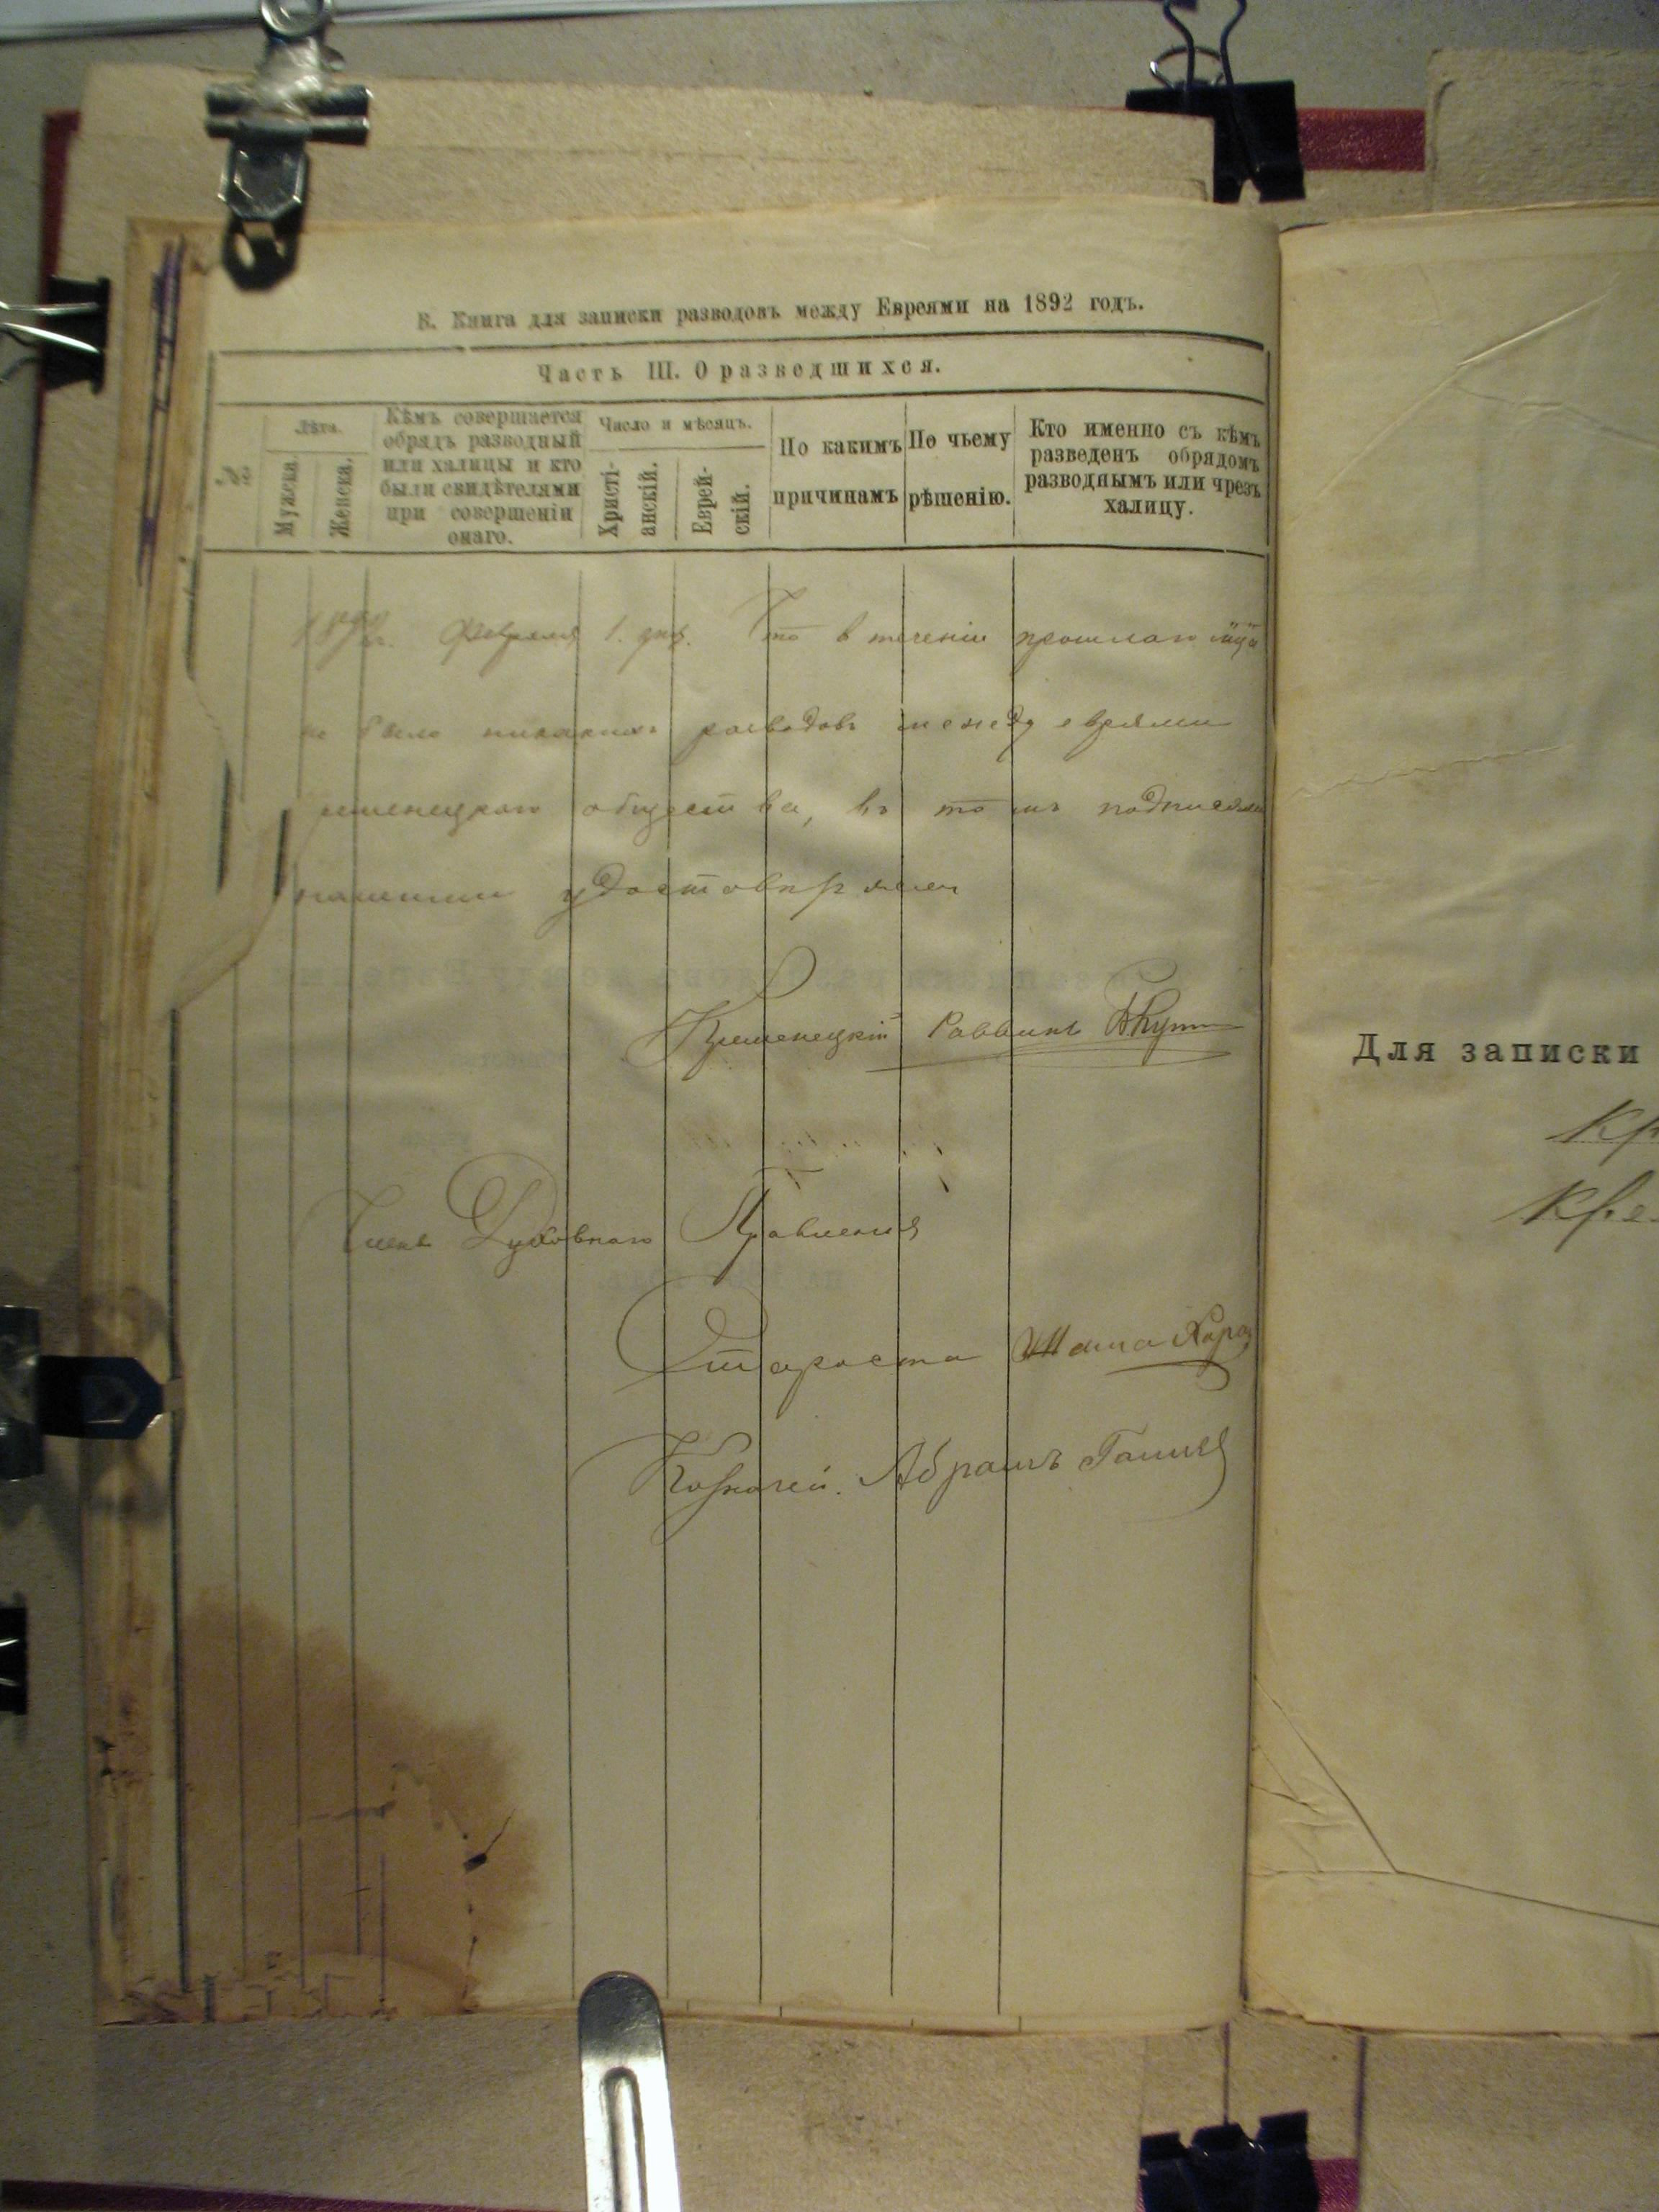 В. Книга для записки разводовъ между Евреями на 1892 годъ.
Часть III. О разведшихся.
№
Лѣта.
Мужска
Женска.
Кѣмъ совершается
обрядъ разводный
или халицы и кто
были свидѣтелями
при совершеніи
онаго.
Число и мѣсяцъ.
Христі-
анскій.
Еврей-
скій.
По какимъ
причинамъ
По чьему
рѣшенію.
Кто именно съ кѣмъ
разведенъ обрядомъ
разводнымъ или чрезъ
халицу.
Февраля 1. дня. Что в теченіи прошлаго
не было никакихъ разводовъ между евреями
общества, въ томъ подписями
нашими удостовѣряемъ
Кременецкій Раввинъ
Члены Духовнаго Правленія
Староста
Казначей. Абрамъ
Для записки
Кр
Кре